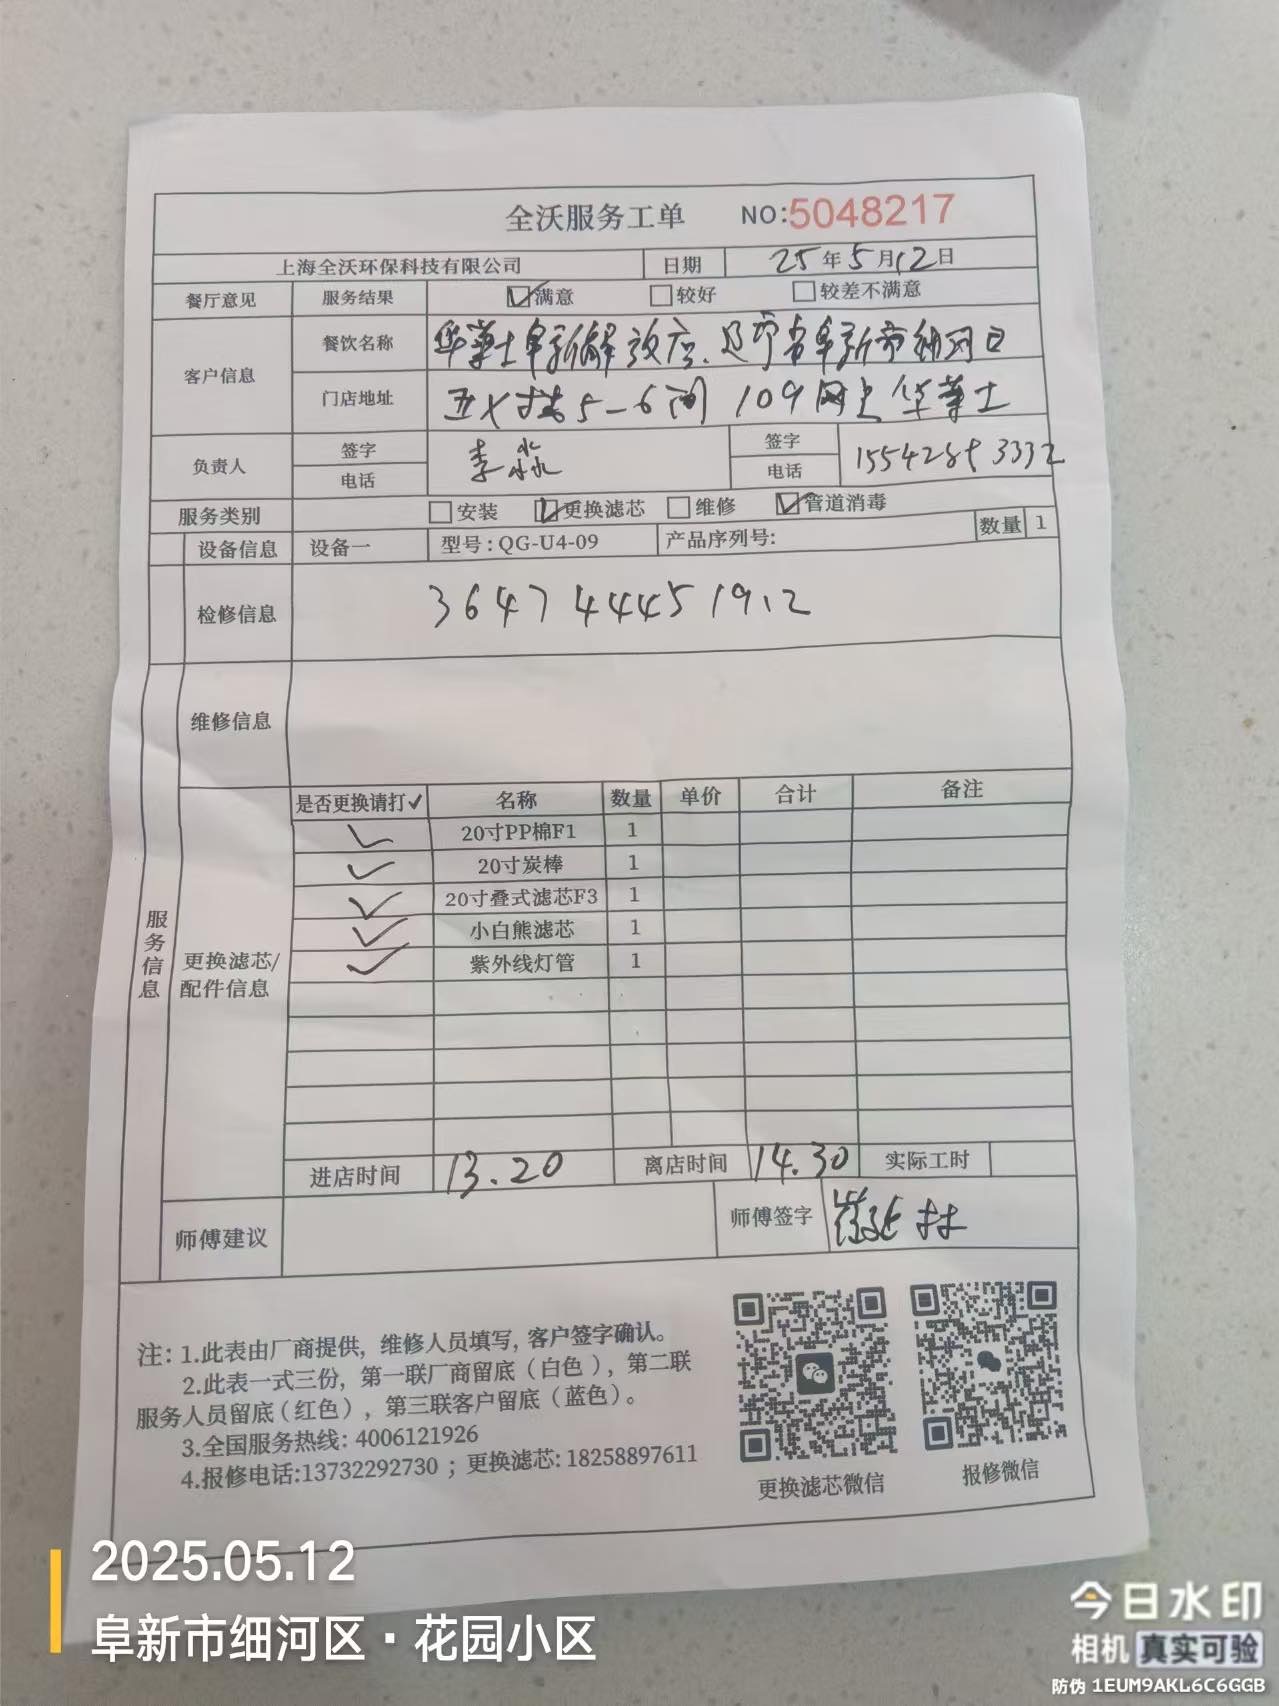 全沃服务工单 NO:5048217
上海全沃环保科技有限公司 日期 25年5月12日
餐厅意见 服务结果 ☑满意 □较好 □较差不满意
客户信息 餐饮名称 华莱士阜新解放店.辽宁省阜新市细河区
门店地址 5-6门 109网点华莱士
负责人 签字 李淼 签字
电话 电话 3332
服务类别 □安装 ☑更换滤芯 □维修 ☑管道消毒
设备信息 设备一 型号:QG-U4-09 产品序列号: 数量 1
检修信息 3647444519.2
维修信息
服务信息
更换滤芯/配件信息
是否更换请打✓ 名称 数量 单价 合计 备注
✓ 20寸PP棉F1 1
✓ 20寸炭棒 1
✓ 20寸叠式滤芯F3 1
✓ 小白熊滤芯 1
✓ 紫外线灯管 1
进店时间 13.20 离店时间 14.30 实际工时
师傅建议 师傅签字
注: 1.此表由厂商提供, 维修人员填写, 客户签字确认。
2.此表一式三份, 第一联厂商留底(白色), 第二联
服务人员留底(红色), 第三联客户留底(蓝色)。
3.全国服务热线: 4006121926
4.报修电话:13732292730 ; 更换滤芯: 18258897611
更换滤芯微信 报修微信
2025.05.12
阜新市细河区·花园小区
今日水印
相机 真实可验
防伪 1EUM9AKL6C6GGB